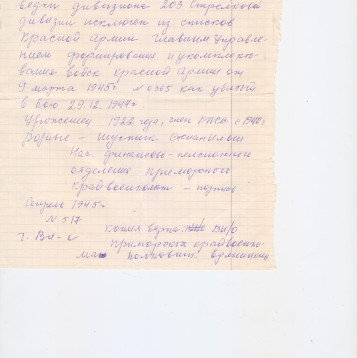 ведки дивизиона 203 Стрелковой
дивизии исключен из списков
Красной Армии главным управле-
нием формирования и укомплекто-
вания войск красной Армии от
9 марта 1945г. № 0765 как убитый
в бою 29.12.1944г.
Уроженец 1922 года, член
Нач. финансово-пенсионного
отделения приморского
Крайвоенкомат
Апрель 1945г.
№ 517
г. Вл-к Копия верна: ВрИ/О
Приморского крайвоенко-
мата полковник